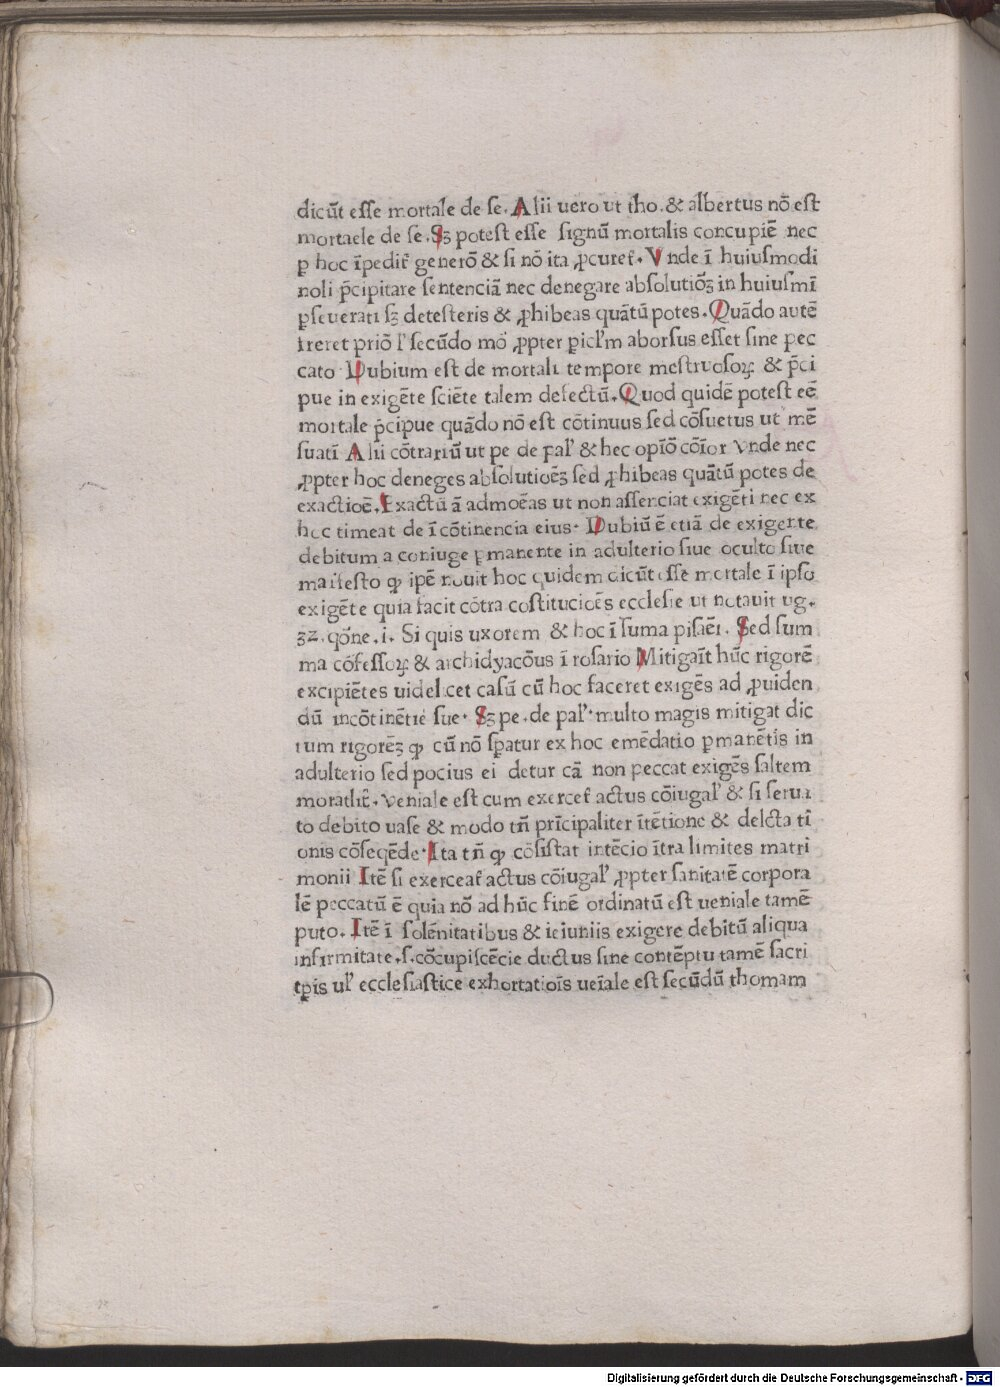 dicūt esse mortale de se. Alii uero ut tho. & albertus nō est
mortaele de se. Sꝫ potest esse signū mortalis concupiē nec
ꝑ hoc īpedit᷑ generō & si nō ita ꝓcuret᷑. Vnde ī huiusmodi
noli p̄cipitare sentenciā nec denegare absolutiōꝫ in huiusmī
ꝑseuerati sꝫ detesteris & ꝓhibeas quātū potes. Quādo autē
treret priō lꝰ secūdo mō ꝓpter ꝑiclꝰm aborsus esset sine pec
cato Dubium est de mortali tempore mestruosoꝝ & p̄ci
pue in exigēte sciēte talem defectū. Quod quidē potest eē
mortale p̄cipue quādo nō est cōtinuus sed cōsuetus ut mē
suatī Alii cōtrariū ut pe de palꝰ & hec opīō cōīor Vnde nec
ꝓpter hoc deneges absolutioēꝫ sed ꝓhibeas quātū potes de
exactioē. Exactū ā admoēas ut non assenciat exigēti nec ex
hoc timeat de ī cōtinencia eius. Dubiū ē etiā de exigente
debitum a coniuge ꝑmanente in adulterio siue oculto siue
manifesto ꝙ ipē nouit hoc quidem dicūt esse mortale ī ipso
exigēte quia facit cōtra costitucioēs ecclesie ut notauit ug.
3z. qōne. i. Si quis uxorem & hoc ī suma pisaēī. Sed sum
ma cōfessoꝝ & archidyacōus ī rosario Mitigaīt hūc rigorē
excipiētes uidelicet casū cū hoc faceret exigēs ad ꝓuiden
dū incōtinētie sue. Sꝫ pe. de palꝰ. multo magis mitigat dic
tum rigorēꝫ ꝙ cū nō sꝑatur ex hoc emēdatio ꝑmanētis in
adulterio sed pocius ei detur cā non peccat exigēs saltem
moralit᷑. Veniale est cum exercet᷑ actus cōiugalꝰ & si serua
to debito uase & modo tn̄ prīcipaliter ītētione & delcta ti
onis cōseqēde. Ita tn̄ ꝙ cōsistat intēcio ītra limites matri
monii Itē si exerceat᷑ actus cōiugalꝰ ꝓpter sanitatē corpora
lē peccatū ē quia nō ad hūc finē ordinatū est ueniale tamē
puto. Itē ī solēnitatibus & ieiuniis exigere debitū aliqua
infirmitate. s. cōcupiscēcie ductus sine contēptu tamē sacri
tꝑis ulꝰ ecclesiastice exhortatioīs ueīale est secūdū thomam
Digitalisierung gefördert durch die Deutsche Forschungsgemeinschaft - DFG